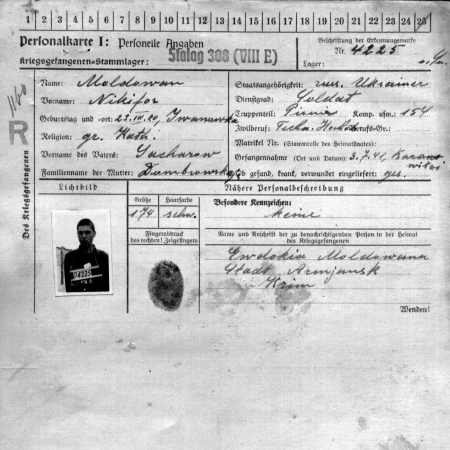 1 2 3 4 5 6 7 8 9 10 11 12 13 14 15 16 17 18 19 20 21 22 23 24 25
Personalkarte I: Personelle Angaben
Kriegsgefangenen-Stammlager: Stalag 308 (VIII E)
Beschriftung der Erkennungsmarke
Nr. 4225
Lager:
Des Kriegsgefangenen
R
Name: Moldowan
Vorname: Nikifor
Geburtstag und -ort: Iwanowka
Religion: gr. Kath.
Vorname des Vaters: Sacharew
Familienname der Mutter:
Staatsangehörigkeit: russ. Ukrainer
Dienstgrad: Soldat
Truppenteil: Pionier Komp. usw.: 154
Zivilberuf: Berufs-Gr.:
Matrikel Nr. (Stammrolle des Heimatstaates):
Gefangennahme (Ort und Datum): 3.7.41,
Ob gesund, krank, verwundet eingeliefert: ges.
Lichtbild
Nähere Personalbeschreibung
Größe Haarfarbe
174 schw.
Besondere Kennzeichen:
keine
Fingerabdruck
des rechten! Zeigefingers
Name und Anschrift der zu benachrichtigenden Person in der Heimat
des Kriegsgefangenen
Ewdokia Moldowana
Stadt Armjansk
Krim
Wenden!